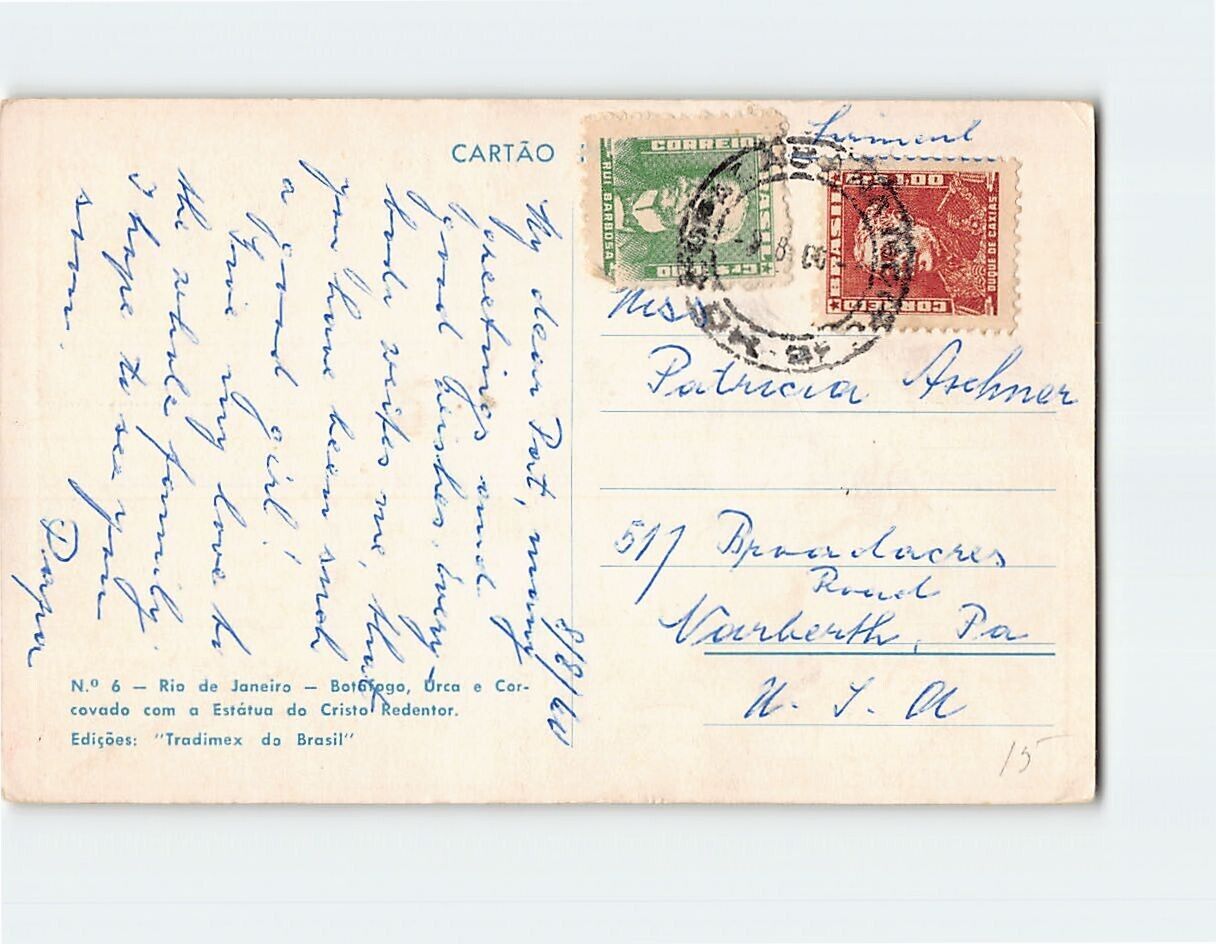 CARTÃO
CORREIO
BRASIL
RUI BARBOSA
BRASIL
CORREIO
DUQUE DE CAXIAS
8/8/60
My dear Pat, many
greetings and
good wishes. Every-
body writes me, that
you have been such
a good girl!
Give my love to
the whole family.
I hope to see you
soon.
Papa
Miss
Patricia Aschner
517 Broadacres
Road
Narberth, Pa
U. S. A
15
N.º 6 — Rio de Janeiro — Botafogo, Urca e Cor-
covado com a Estátua do Cristo Redentor.
Edições: "Tradimex do Brasil"